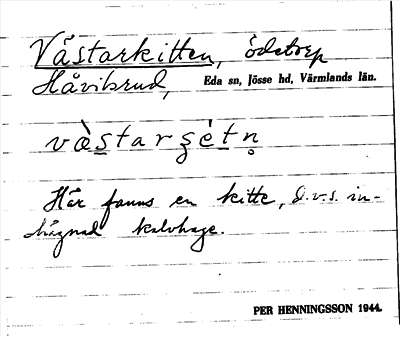 Västarkitten, ödetorp
Håvilsrud, Eda sn, Jösse hd, Värmlands län.
vὰs̲tarʂètn̥
Här fanns en kitte, d.v.s. in-
hägnad kalvhage.
PER HENNINGSSON 1944.